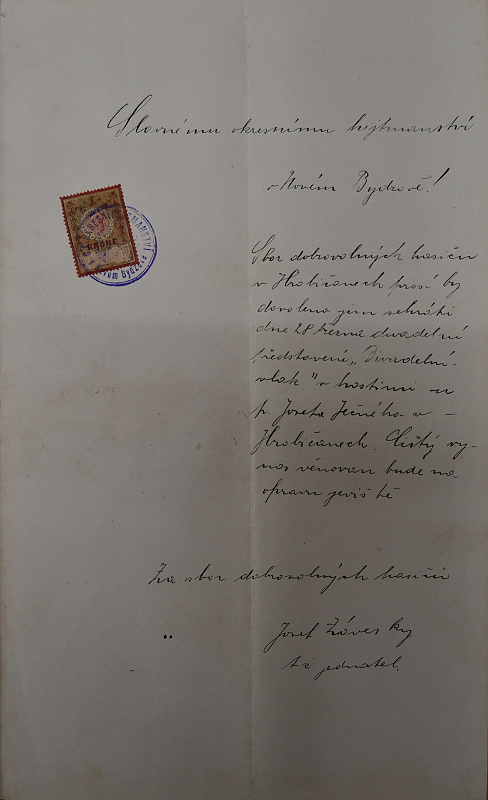 Slavnému okresnímu hejtmanství
v Novém Bydžově!
1
KRONE
Sbor dobrovolných hasičů
v Hrobičanech prosí by
dovoleno jim sehráti
dne 28 března divadelní
představení „Divadelní
vlak" v hostinci u
p. Josefa Ječného v –
Hrobičanech. Čistý vý-
nos věnován bude na
opravu jeviště
Za sbor dobrovolných hasičů
Josef Závesky
t. č. jednatel.